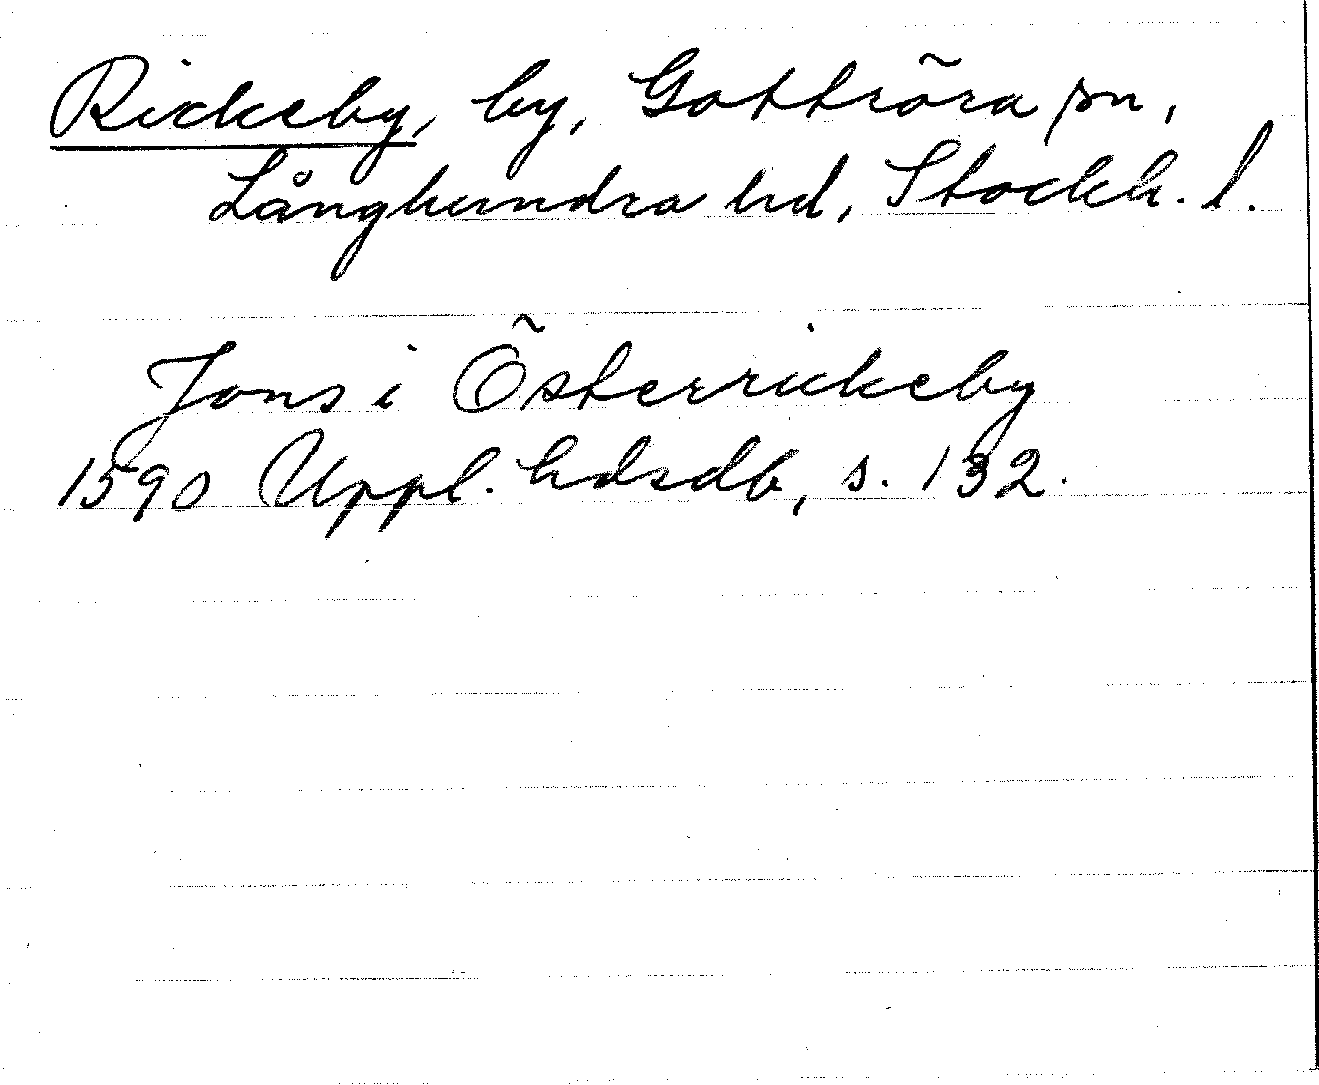 Rickeby, by, Gottröra sn,
Långhundra hd, Stockh. l.
Jons i Österrickeby
1590 Uppl. hdsdb, s. 132.